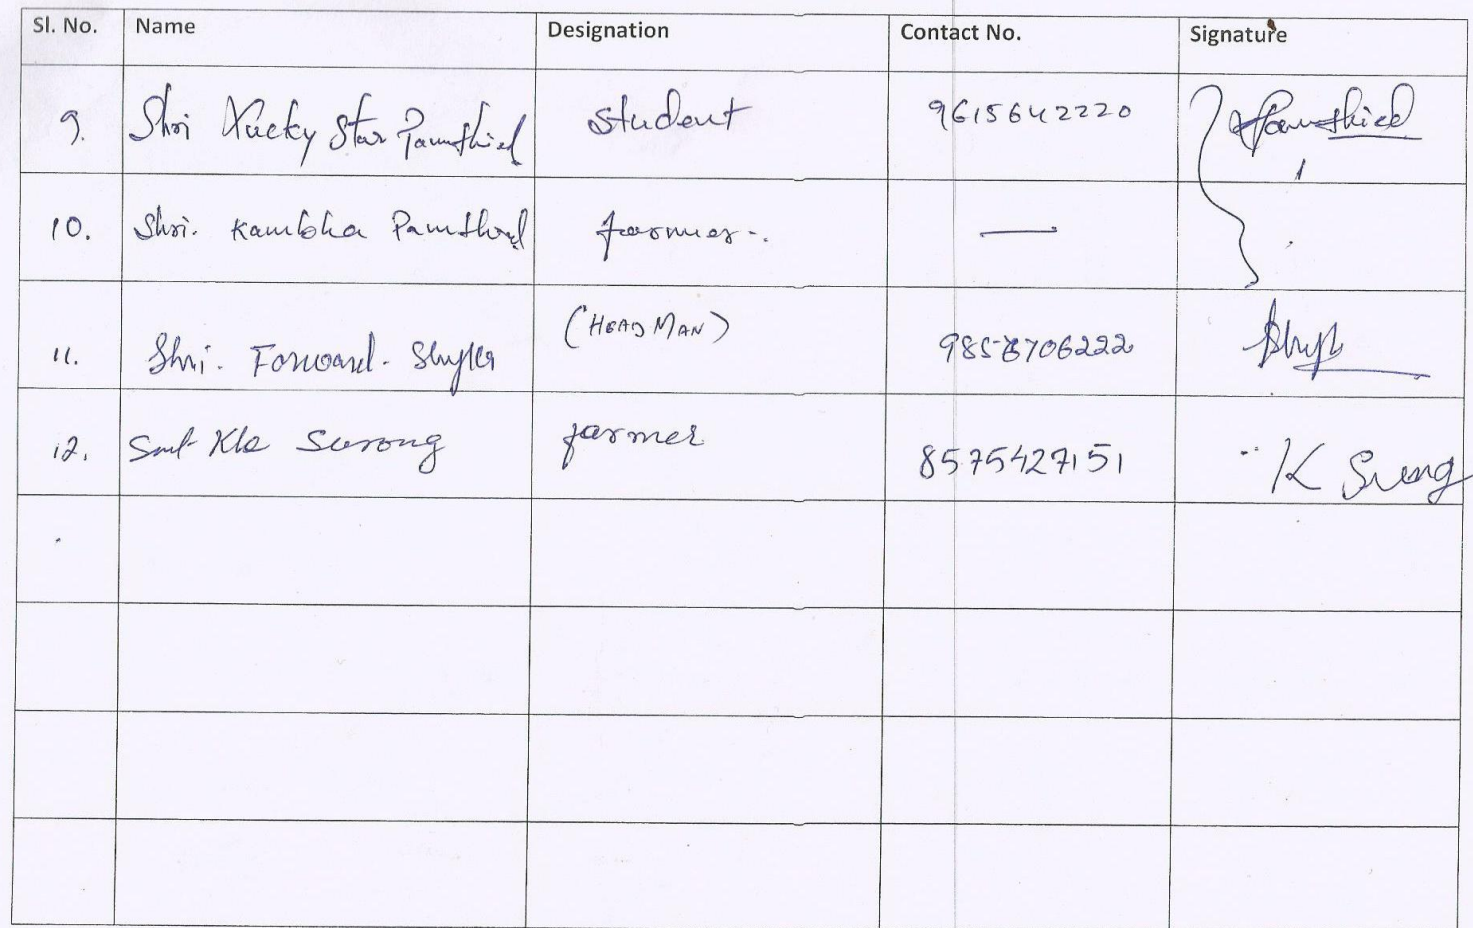 Sl. No. Name Designation Contact No. Signature
9. Shri Lucky Star Pamthied student 9615642220 Pamthied
10. Shri. Kambha Pamthied farmer. —
11. Shri. Forward. Shylla (HEAD MAN)
12. Smt Kle Surong farmer 8575427151 K Surong